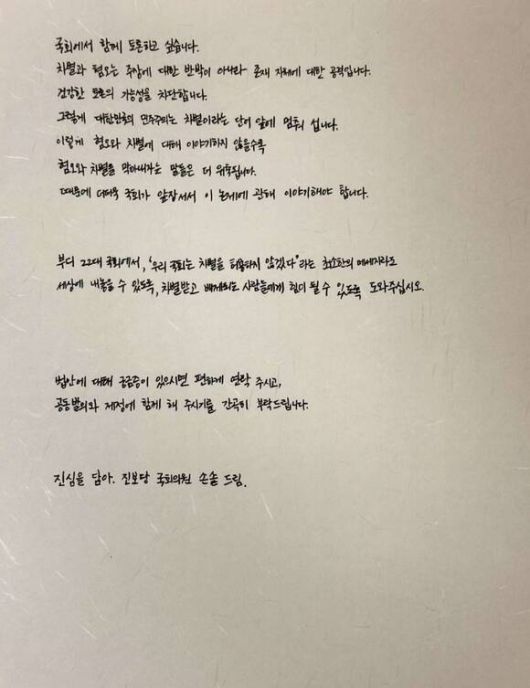 국회에서 함께 토론하고 싶습니다.
차별과 혐오는 주장에 대한 반박이 아니라 존재 자체에 대한 공격입니다.
건강한 토론의 가능성을 차단합니다.
그렇게 대한민국의 민주주의는 차별이라는 단어 앞에 멈춰 섭니다.
이렇게 혐오와 차별에 대해 이야기하지 않을수록
혐오와 차별을 막아내자는 말들은 더 위축됩니다.
때문에 더더욱 국회가 앞장서서 이 문제에 관해 이야기해야 합니다.
부디 22대 국회에서, '우리 국회는 차별을 허용하지 않겠다'라는 최소한의 메세지라도
세상에 내놓을 수 있도록, 차별받고 배제되는 사람들에게 힘이 될 수 있도록 도와주십시오.
법안에 대해 궁금증이 있으시면 편하게 연락 주시고,
공동발의와 제정에 함께 해 주시기를 간곡히 부탁드립니다.
진심을 담아. 진보당 국회의원 손솔 드림.